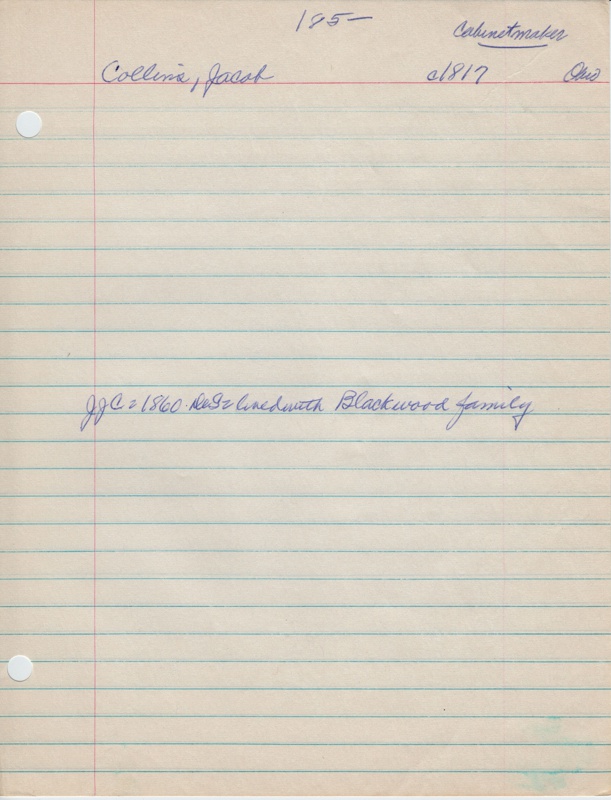 185-
Cabinetmaker
Collins, Jacob c1817 Ohio
JJC = 1860 · lived with Blackwood family